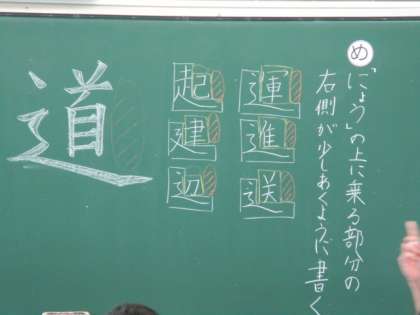 め
「にょう」の上に乗る部分の
右側が少しあくように書く
運
進
送
起
建
辺
道